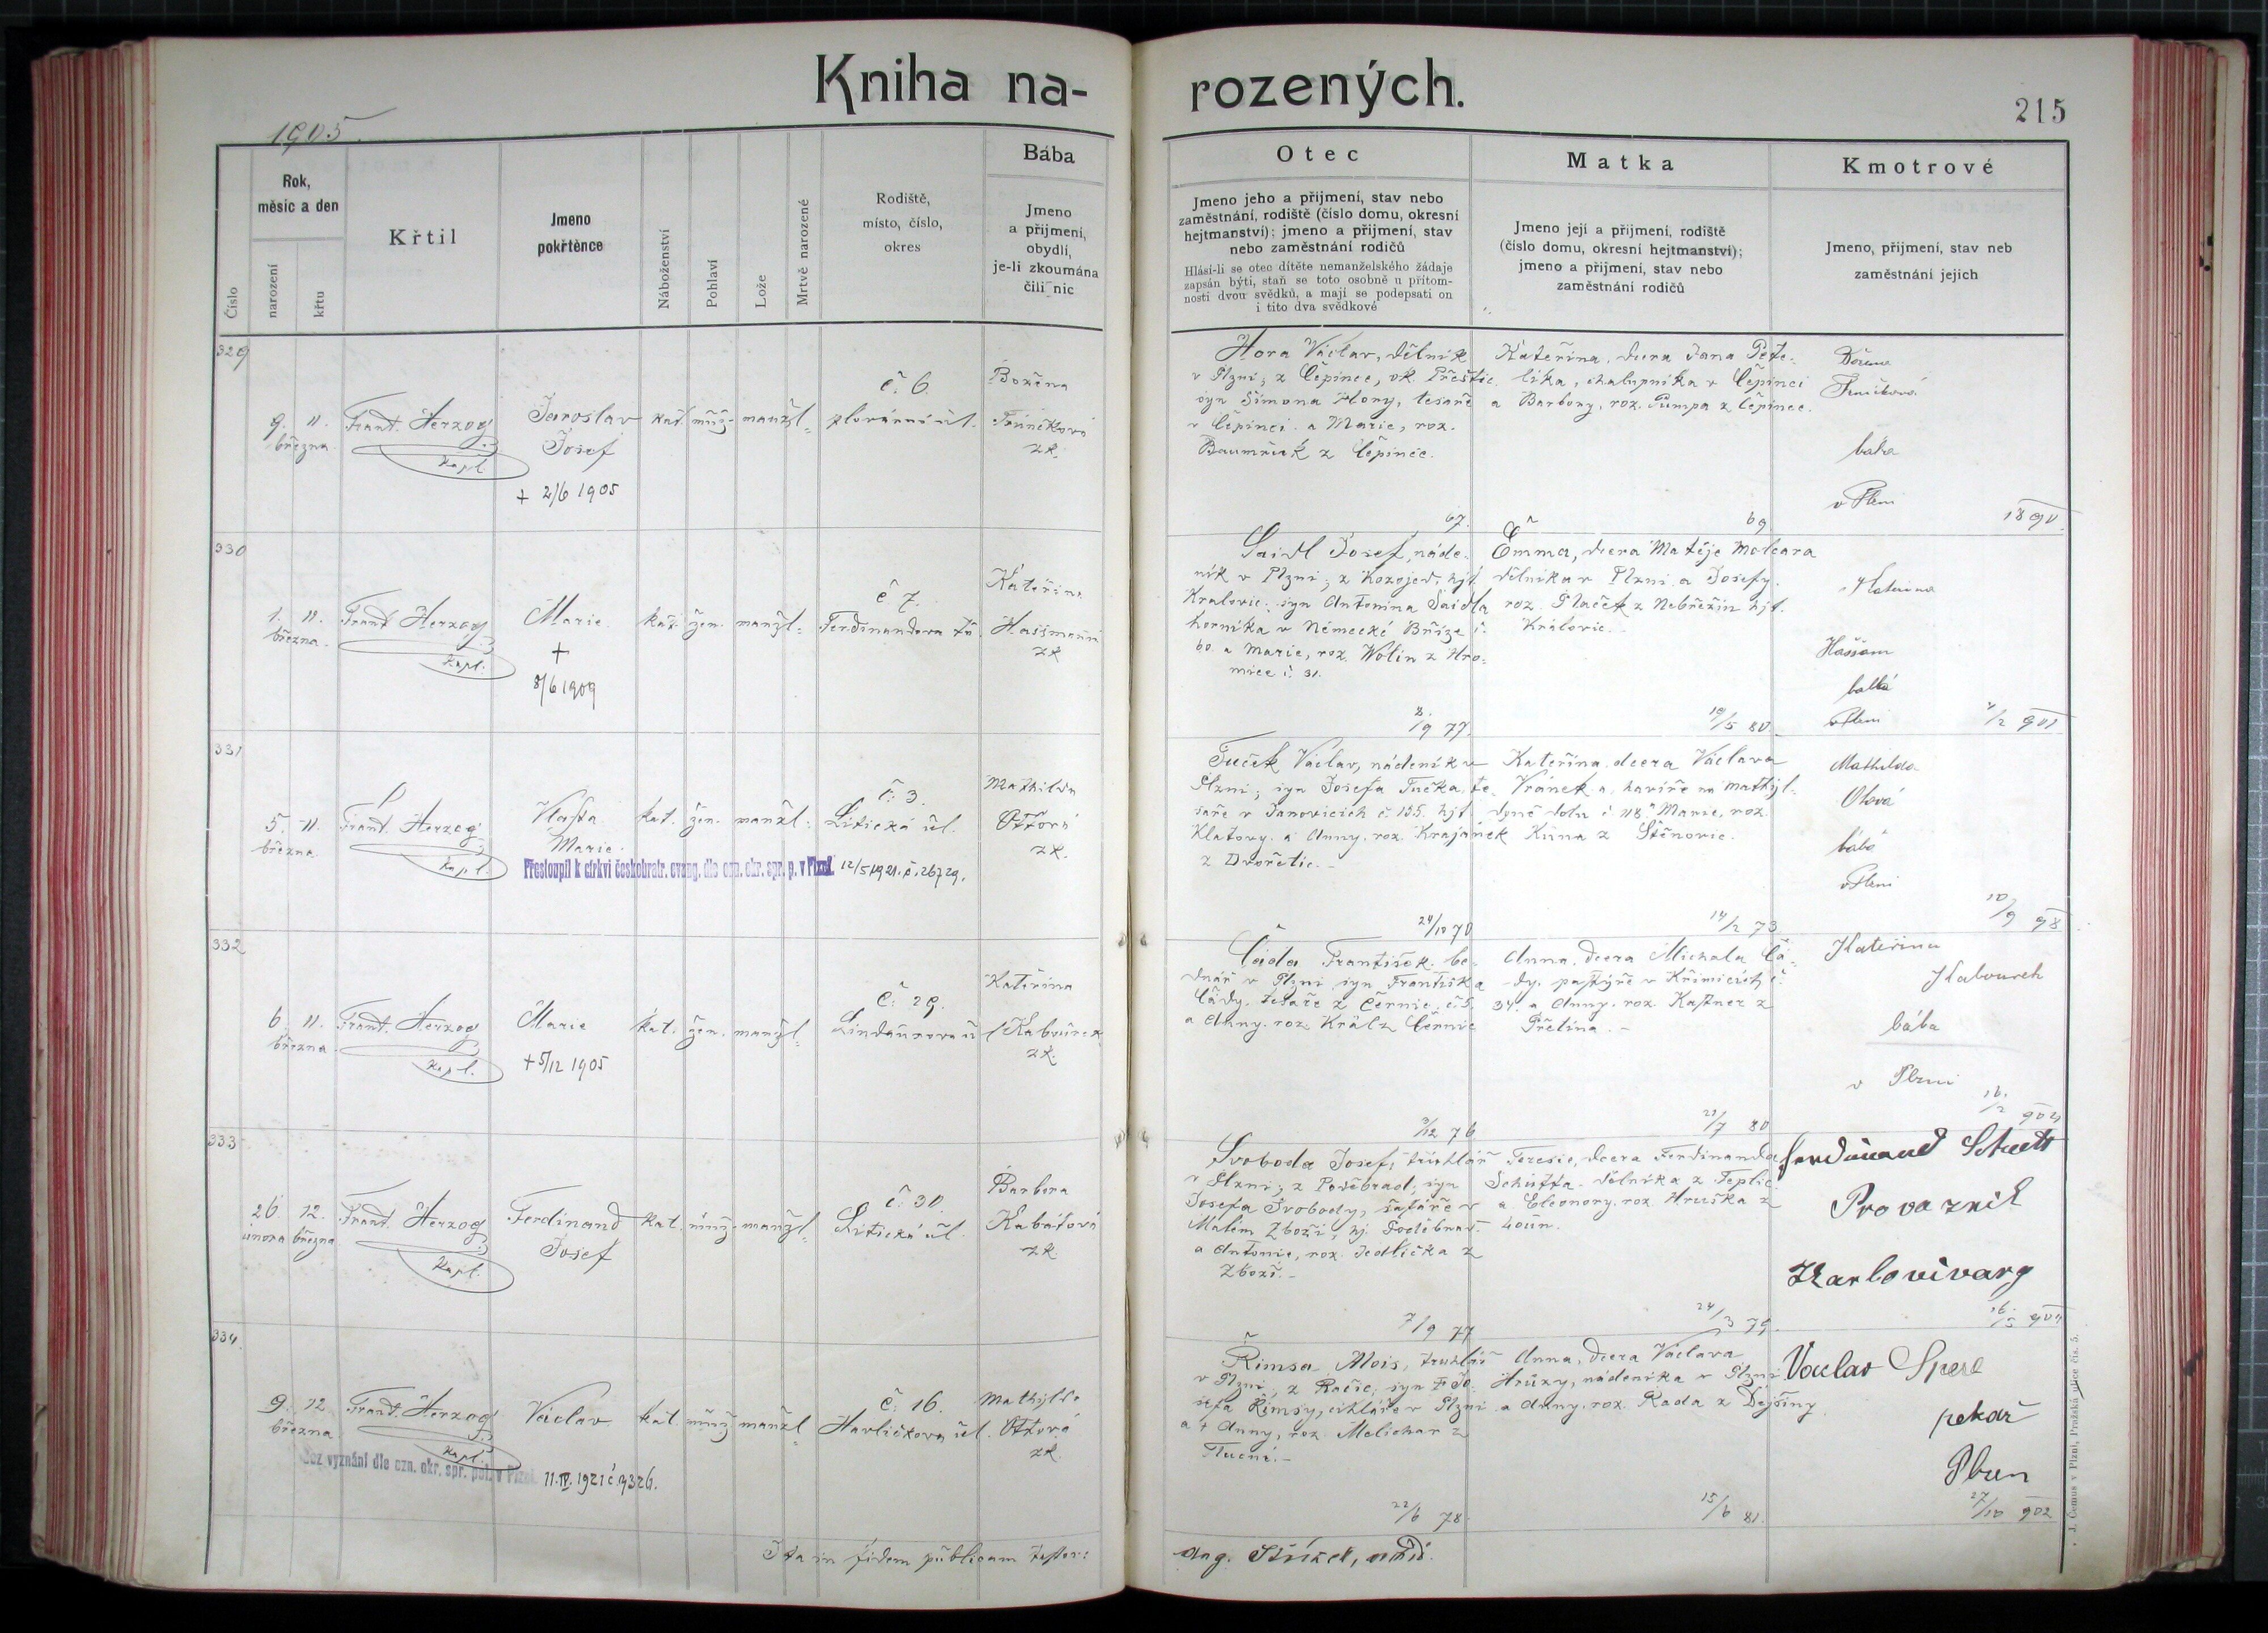 Kniha na-
rozených.
215
1905.
Číslo
Rok,
měsíc a den
narození
křtu
Křtil
Jmeno
pokřtěnce
Náboženství
Pohlaví
Lože
Mrtvě narozené
Rodiště,
místo, číslo,
okres
Bába
Jmeno
a přijmení,
obydlí,
je-li zkoumána
čili nic
Otec
Jmeno jeho a přijmení, stav nebo
zaměstnání, rodiště (číslo domu, okresní
hejtmanství); jmeno a přijmení, stav
nebo zaměstnání rodičů
Hlásí-li se otec dítěte nemanželského žádaje
zapsán býti, staň se toto osobně u přítom-
nosti dvou svědků, a mají se podepsati on
i tito dva svědkové
Matka
Jmeno její a přijmení, rodiště
(číslo domu, okresní hejtmanství);
jmeno a přijmení, stav nebo
zaměstnání rodičů
Kmotrové
Jmeno, přijmení, stav neb
zaměstnání jejich
329
9. 11.
března
Frant. Herzog
kapl.
Jaroslav
Josef
+ 2/6 1905
kat. muž. manžl.
č. 6.
plovární ul.
Božena
zk.
Hora Václav, dělník
v Plzni; z Čepince, ok. Přeštic
syn Šimona Hory, tesaře
v Čepinci a Marie, roz.
z Čepince.
67.
Kateřina, dcera Jana Pete-
líka, chalupníka v Čepinci
a Barbory, roz. Pumpa z Čepince.
69
bába
v Plzni
1890
330
1. 11.
března.
Frant. Herzog
kapl.
Marie
+
8/6 1909
kat. žen. manžl.
č. 7.
Ferdinandova tř.
Kateřina
zk
Saidl Josef, náde-
ník v Plzni; z Kozojed, hjt.
Kralovic; syn Antonína Saidla
horníka v Německé Bříze č.
60 a Marie, roz. Wolin z Hro-
mice č. 31.
8/9 77
Emma, dcera Matěje Molcara
dělníka v Plzni a Josefy
roz. Plaček z Nebřežin hjt.
Královic.
19/5 80
Katerina
v Plzni
901
331
5. 11.
března
Frant. Herzog
kapl.
Vlasta
Marie
Přestoupil k církvi českobratr. evang. dle ozn. okr. spr. p. v Plzni. 12/5 1921. č. 26729.
kat. žen. manžl.
č. 3.
Litická ul.
Mathilda
Ottová
zk.
Tuček Václav, nádeník v
Plzni; syn Josefa Tučka, te-
saře v Janovicích č. 155. hjt.
Klatovy. a Anny. roz. Krajánek
z Dvořetic. -
24/10 70
Kateřina dcera Václava
Vránek a, havíře na mathyl-
dyně dolu č. 118. Marie, roz.
Kůna z Štěnovic.
14/2 73
Mathilda
bába
v Plzni
10/9 98
332
6. 11.
března
Frant. Herzog
kapl.
Marie
+ 5/12 1905
kat. žen. manžl.
Č. 29.
Lindaurova ul.
Kateřina
Kabourek
zk.
Čáda František be-
dnář v Plzni syn Františka
Čády, tesaře z Černic č. 5.
a Anny. roz. Král z Černic
3/12 76
Anna. dcera Michala Čá-
dy, pastýře v Křimicích č.
34. a Anny. roz. Kastner z
Přetína. -
21/7 80
Kateřina
Kabourek
bába
v Plzni
16/2 904
333
26. 12.
února března
Frant. Herzog
kapl.
Ferdinand
Josef
kat. muž. manžl.
č. 30.
Litická ul.
Barbora
Kabátová
zk.
Svoboda Josef, truhlář
v Plzni; z Poděbrad; syn
Josefa Svobody, šafáře v
Malém Zboží, hj. Poděbrad.
a Antonie, roz. Jedlička z
Zboží. -
7/9 77
Terezie, dcera Ferdinanda
Schütta - dělníka z Teplic
a Eleonory. roz. Hruška z
Loun.
24/3 79
Ferdinand Schutt
Provaznik
Karlovivary
904
334
9. 12.
března
Frant. Herzog
kapl.
Václav
bez vyznání dle ozn. okr. spr. pol. v Plzni. 11. IV. 1921 č. 9326.
kat. muž. manžl.
č. 16.
Havlíčkova ul.
Mathylda
Ottová
zk.
Římsa Alois, truhlář
v Plzni, z Račic, syn + Jo-
sefa Římsy, cihláře v Plzni
a + Anny, roz. Melichar z
Tlucné. -
22/6 78
Anna, dcera Václava
Hrůzy, nádeníka v Plzni
a Anny. roz. Rada z Dejšiny
15/6 81.
Vaclav Sperl
pekař
Plzen
27/10 902
Ita in fidem publicam testor:
J. Čemus v Plzni, Pražská ulice čís. 5.